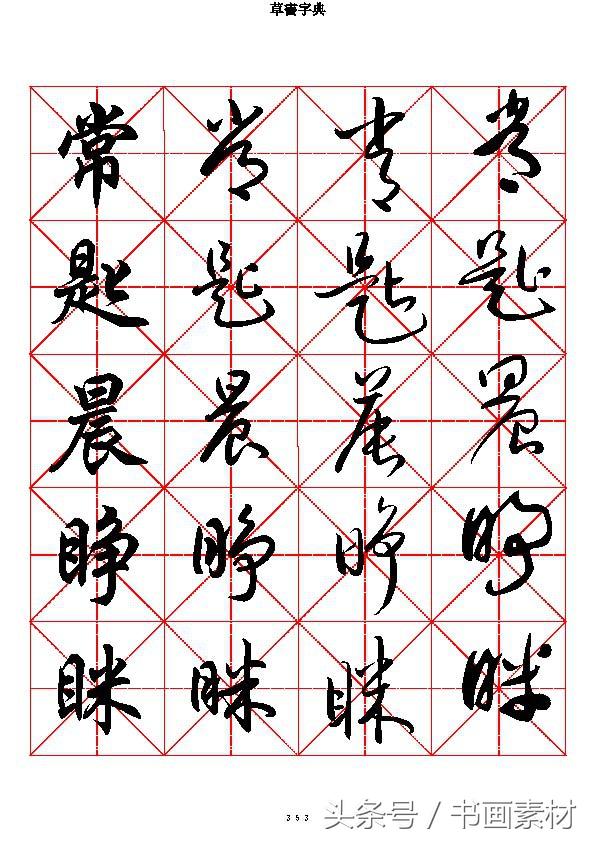 草書字典
常 常 常 常
匙 匙 匙 匙
晨 晨 晨 晨
睜 睜 睜 睜
眯 眯 眯 眯
353
头条号 / 书画素材